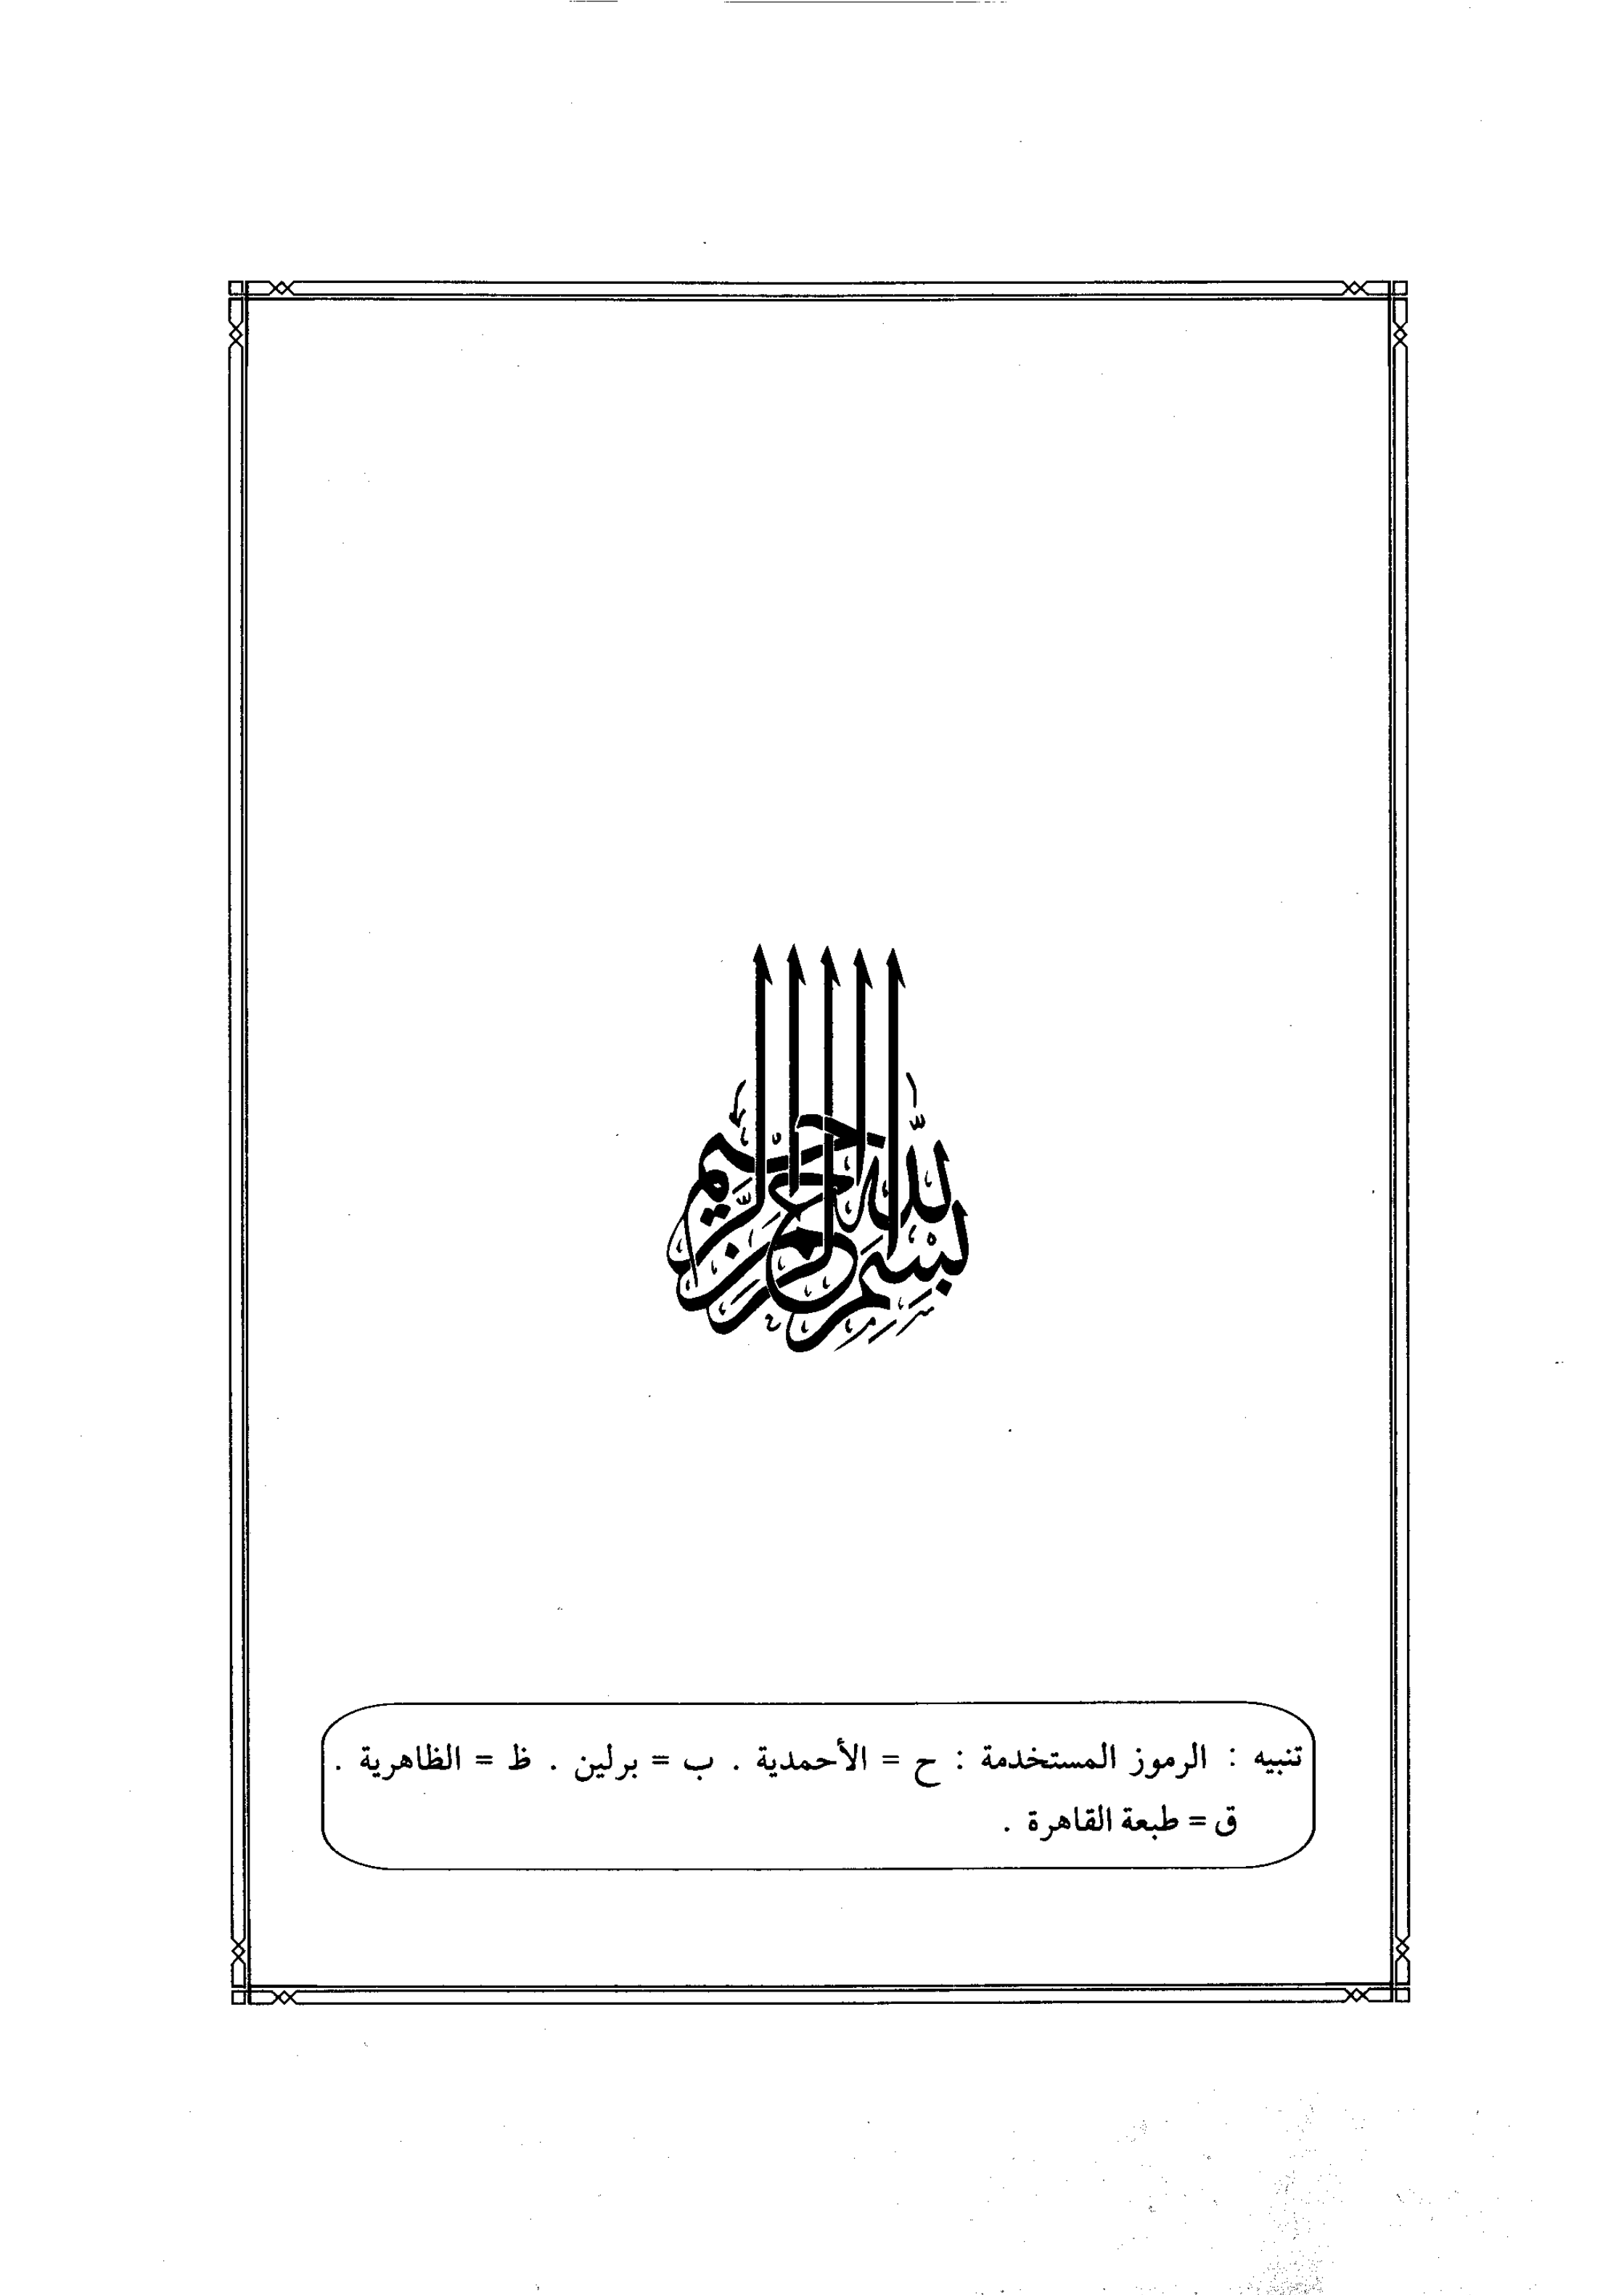 بسم الله الرحمن الرحيم
تنبيه : الرموز المستخدمة : ح = الأحمدية . ب = برلين . ظ = الظاهرية .
ق = طبعة القاهرة .